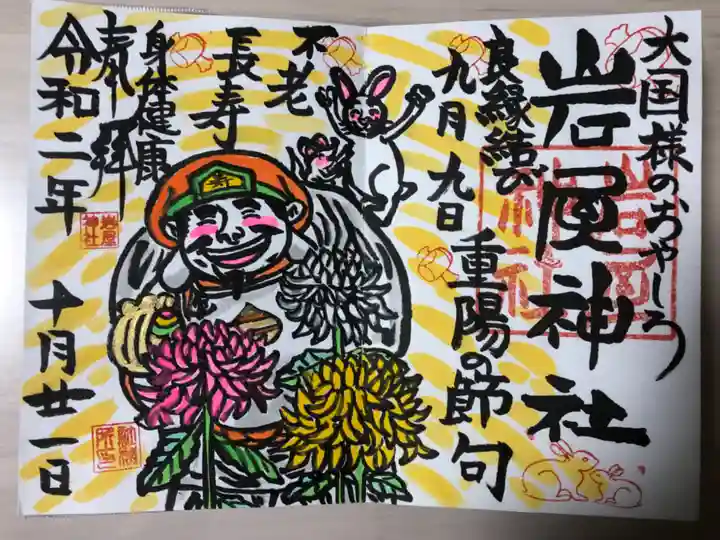 大国様のおやしろ
岩屋神社
良縁結び
九月九日
重陽の節句
不老
長寿
身体健康
奉拝
令和二年
十月廿一日
寿
岩屋
神社